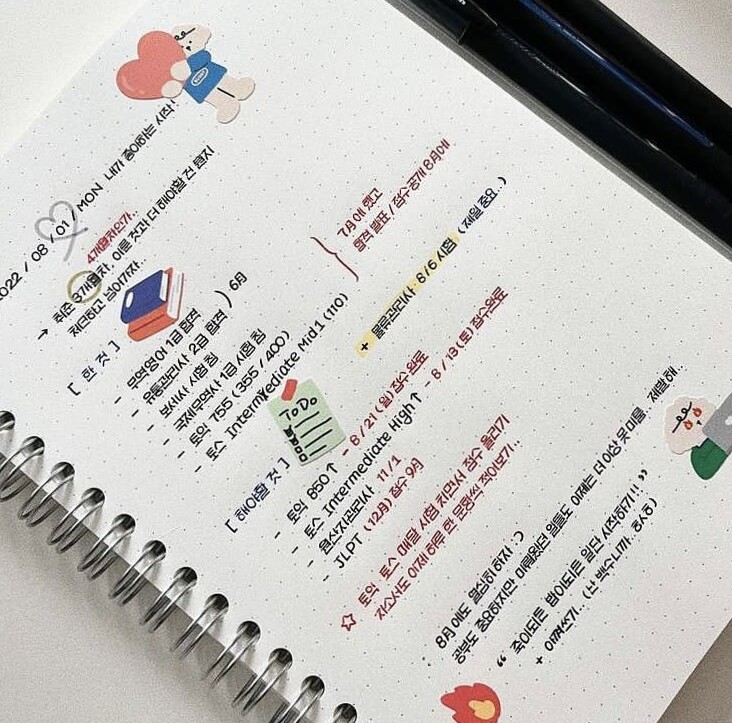 2022 / 08 / 01 / MON 내가 좋아하는 시작!
4개월차인가..
→ 취준 3개월차, 이룬 것과 더 해야할 건 뭔지
체크하고 넘어가자..
[ 한 것 ]
- 무역영어 1급 합격
- 유통관리사 2급 합격 ) 6월
- 보세사 시험 침
- 국제무역사 1급 시험 침
7월에 했고
합격 발표 / 점수공개 8월에
- 토익 755 (355 / 400)
- 토스 Intermediate Mid1 (110)
+ 물류관리사 : 8/6 시험 (제일 중요..)
TO DO
[ 해야할 것 ]
- 토익 850↑ - 8/21 (일) 접수완료
- 토스 Intermediate High↑ - 8/13 (토) 접수완료
- 원산지관리사 11/1
- JLPT (12월) 접수 9월
☆ 토익 토스 매달 시험 치면서 점수 올리기
자소서도 이제 하루 한 문항씩 적어보기..
8월에도 열심히 하자 :)
공부도 중요하지만 미뤄왔던 일들도 이제는 더 이상 못 미룸.. 제발 해..
“ 죽이되든 밥이되든 일단 시작하기!! ”
+ 아껴쓰기.. (난 백수니까. 하하)